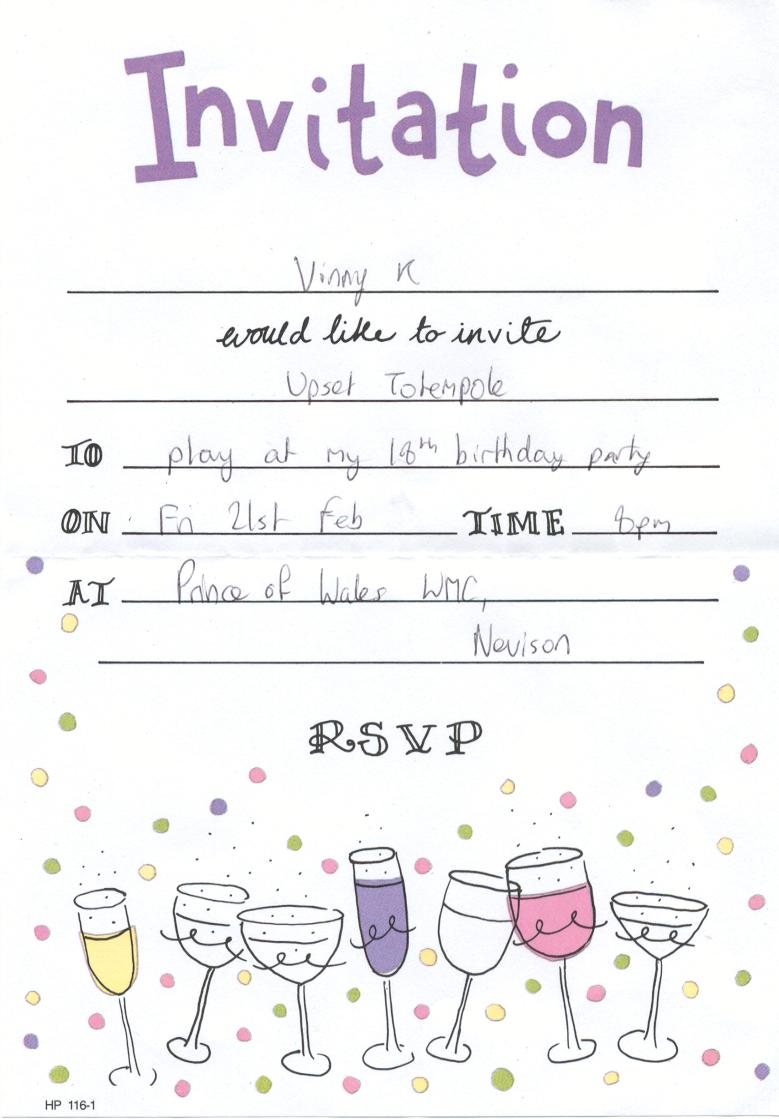 Invitation
Vinny K
would like to invite
Upset Totempole
TO play at my 18th birthday party
ON Fri 21st Feb TIME 8pm
AT Prince of Wales WMC,
Nevison
RSVP
HP 116-1